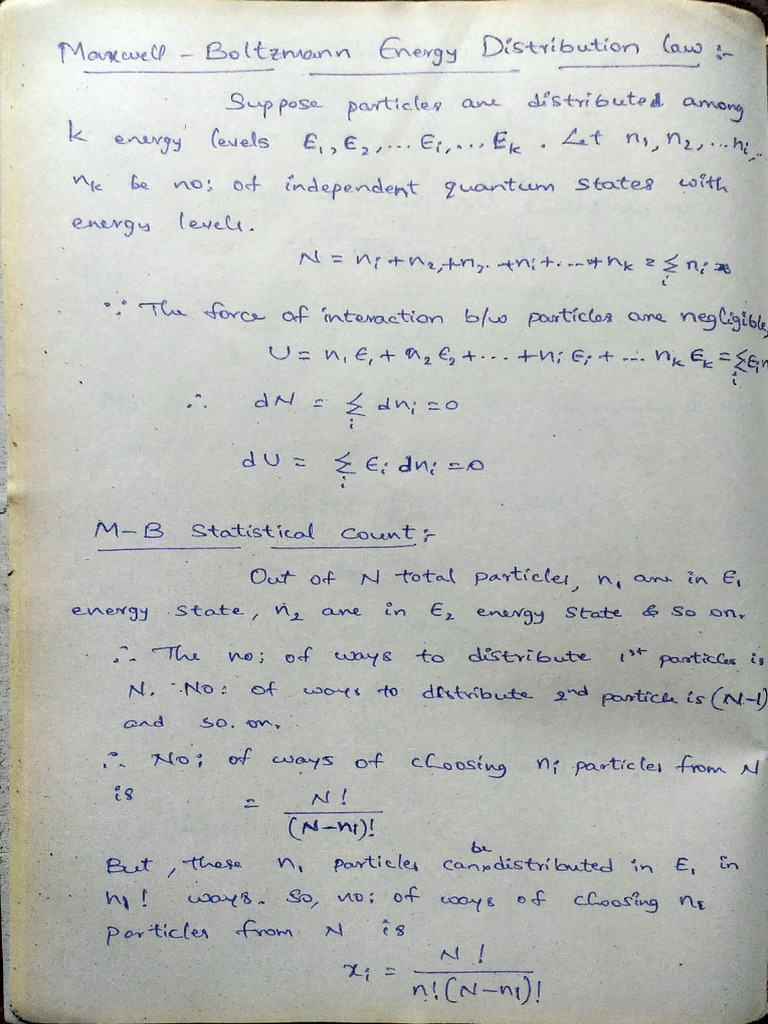 Maxwell - Boltzmann Energy Distribution law :-
Suppose particles are distributed among
k energy levels E₁, E₂, ... Eᵢ, ... Eₖ . Let n₁, n₂, ... nᵢ, ..
nₖ be no: of independent quantum states with
energy levels.
N = nᵢ + n₂, + n, .. + nᵢ + .... + nₖ = Σᵢ nᵢ
∵ The force of interaction b/w particles are negligible,
U = n₁ E₁ + n₂ E₂ + ... + nᵢ Eᵢ + ... nₖ Eₖ = Σᵢ Eᵢ n
∴ dN = Σᵢ dnᵢ = 0
dU = Σᵢ Eᵢ dnᵢ = 0
M-B Statistical count :-
Out of N total particles, n₁ are in E₁
energy state, n₂ are in E₂ energy state & so on.
∴ The no; of ways to distribute 1st particles is
N. No: of ways to distribute 2nd particle is (N-1)
and so. on.
∴ No; of ways of choosing nᵢ particles from N
is = N! / (N-n₁)!
But, these n₁ particles can be distributed in E₁ in
n₁! ways. So, no: of ways of choosing n₁
particles from N is
xᵢ = N! / n!(N-n₁)!